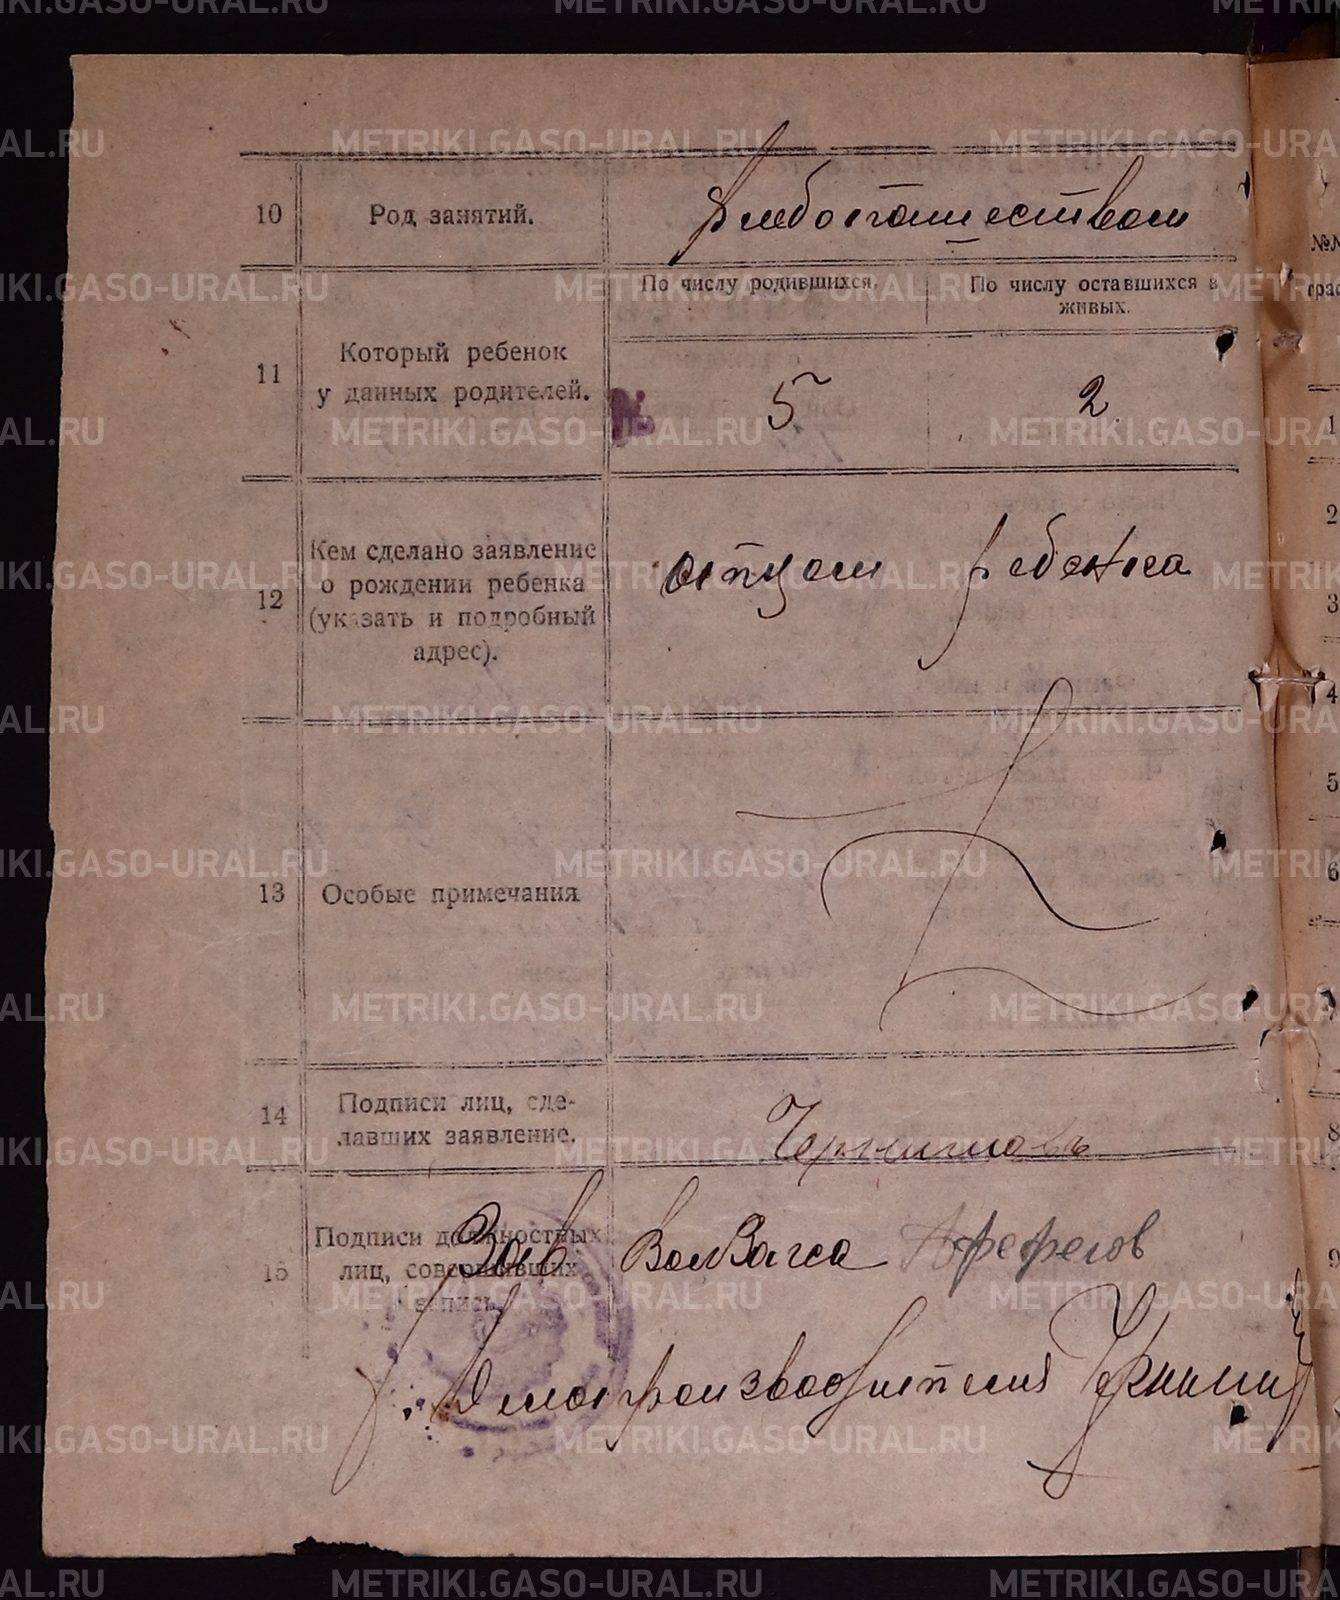 10 Род занятий. Хлебопашеством
11 Который ребенок
у данных родителей.
По числу родившихся.
По числу оставшихся в
живых.
5 2
12 Кем сделано заявление
о рождении ребенка
(указать и подробный
адрес).
отцом ребенка
13 Особые примечания
14 Подписи лиц, сде-
лавших заявление.
15 Подписи должностных
лиц, совершивших
запись.
Зав. ВолЗагса
Делопроизводителя
№№
1
2
3
4
5
6
8
9
METRIKI.GASO-URAL.RU